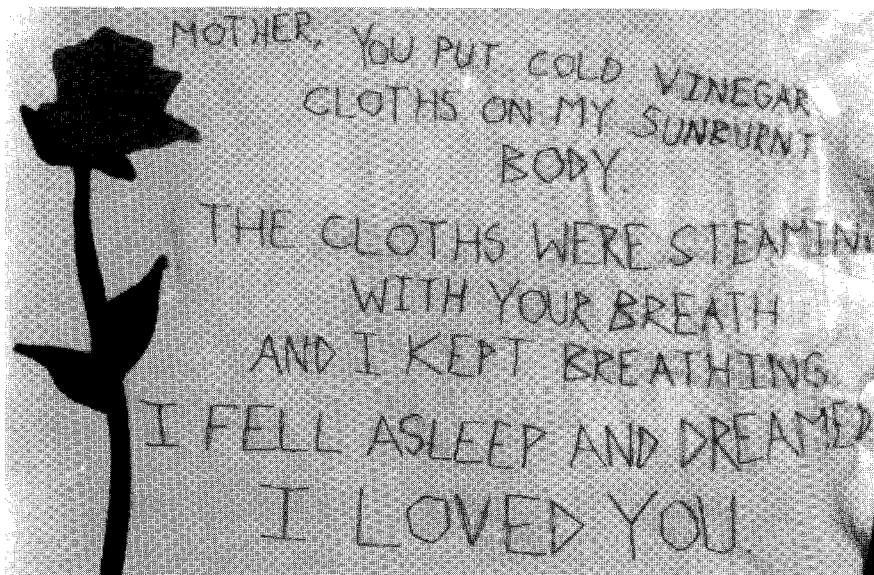 MOTHER, YOU PUT COLD VINEGAR
CLOTHS ON MY SUNBURNT
BODY.
THE CLOTHS WERE STEAMIN
WITH YOUR BREATH
AND I KEPT BREATHING.
I FELL ASLEEP AND DREAMED
I LOVED YOU.